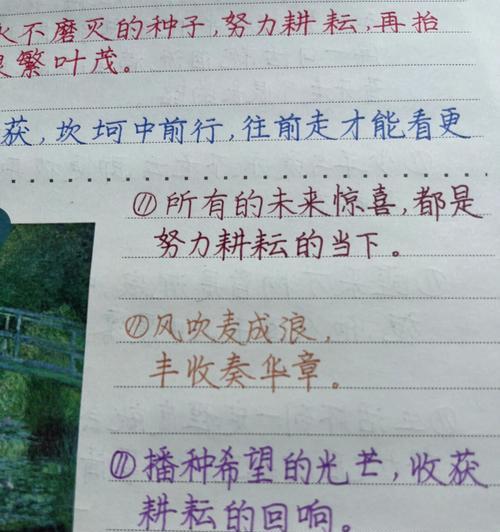 不磨灭的种子,努力耕耘,再抬
繁叶茂。
获,坎坷中前行,往前走才能看更
⑪所有的未来惊喜,都是
努力耕耘的当下。
⑪风吹麦成浪,
丰收奏华章。
⑪播种希望的光芒,收获
耕耘的回响。